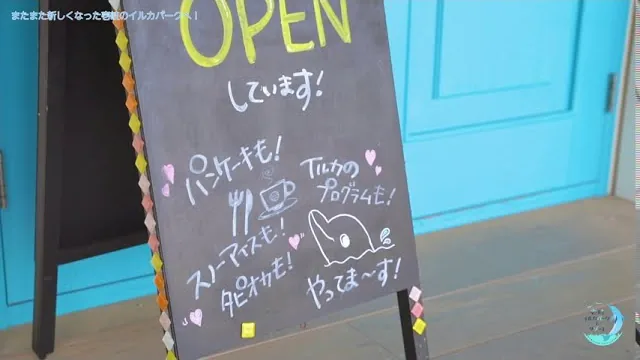 またまた新しくなった壱岐のイルカパークへ！
OPEN
しています！
パンケーキも！
スノーアイスも！
タピオカも！
イルカの
プログラムも！
やってま〜す！